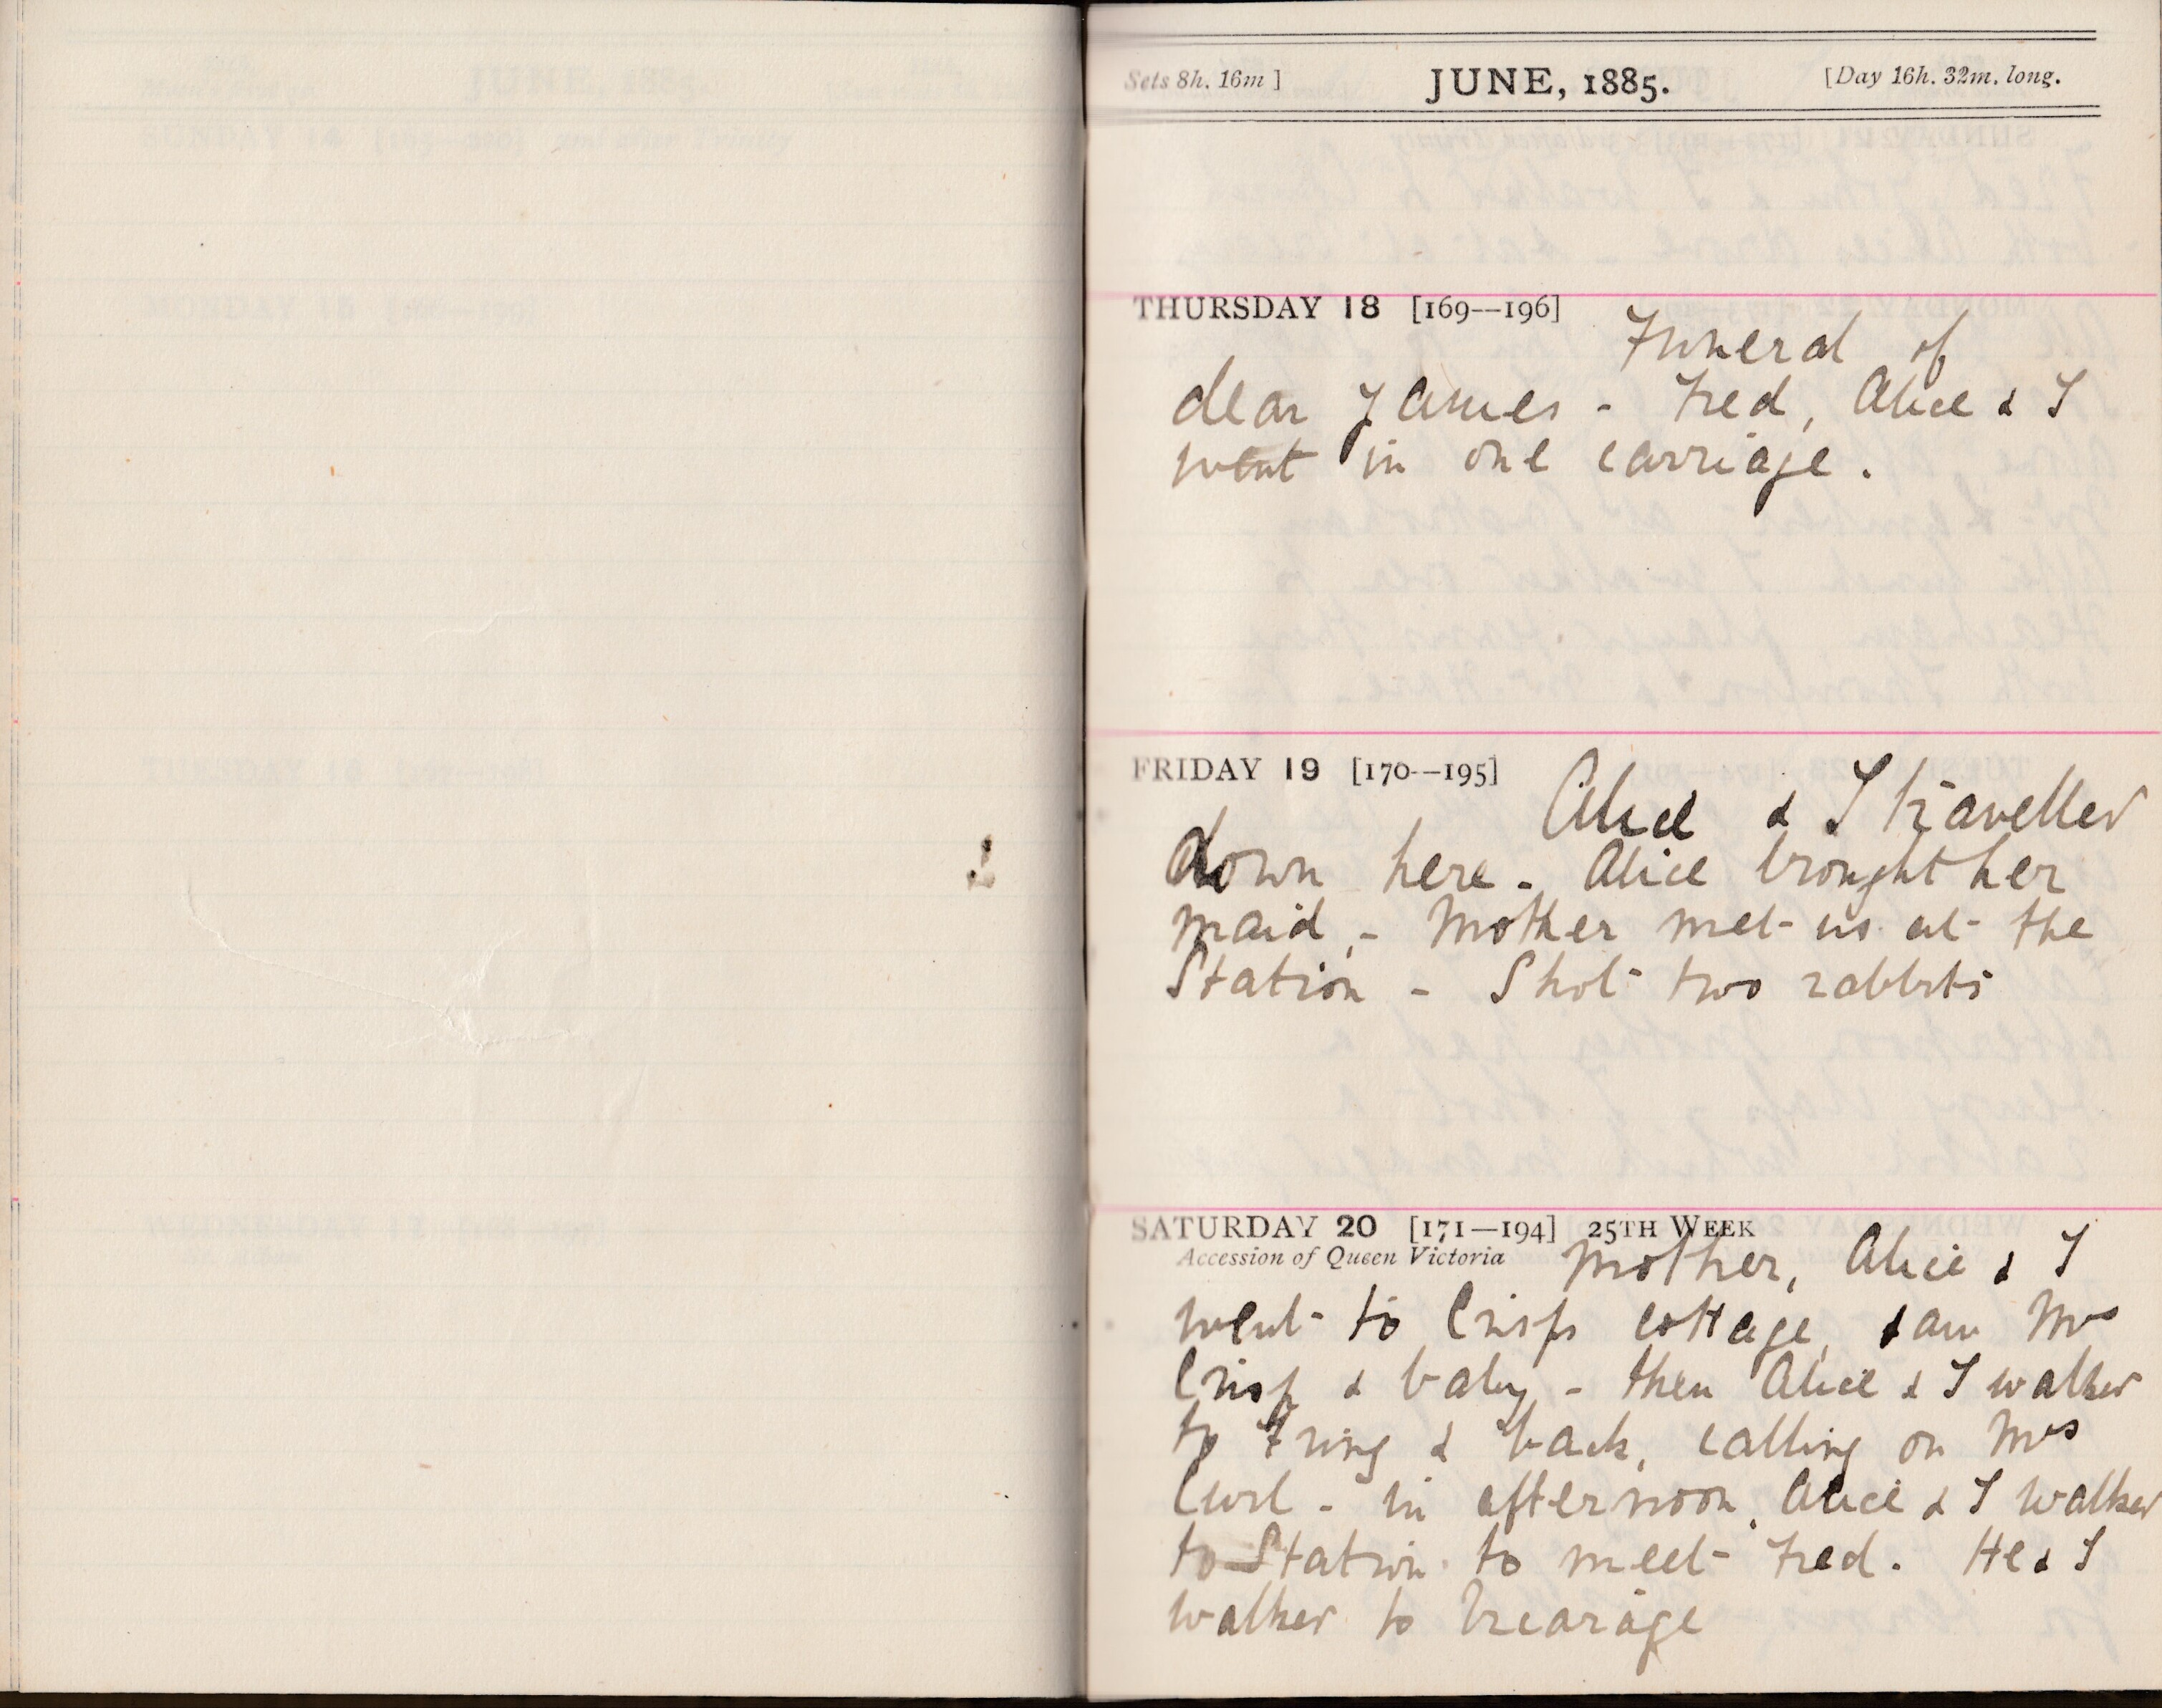 Sets 8h. 16m ] JUNE, 1885. [Day 16h. 32m. long.
THURSDAY 18 [169—196] Funeral of
dear James - Fred, Alice & I
went in one carriage.
FRIDAY 19 [170—195] Alice & I travelled
down here - Alice brought her
maid, - Mother met us at the
Station - Shot two rabbits
SATURDAY 20 [171—194] 25TH WEEK
Accession of Queen Victoria Mother, Alice & I
went to Crisps cottage, saw Mrs
Crisp & baby - then Alice & I walked
to Fring & back, calling on Mrs
Curl - in afternoon, Alice & I walked
to Station to meet Fred. He & I
walked to Vicarage